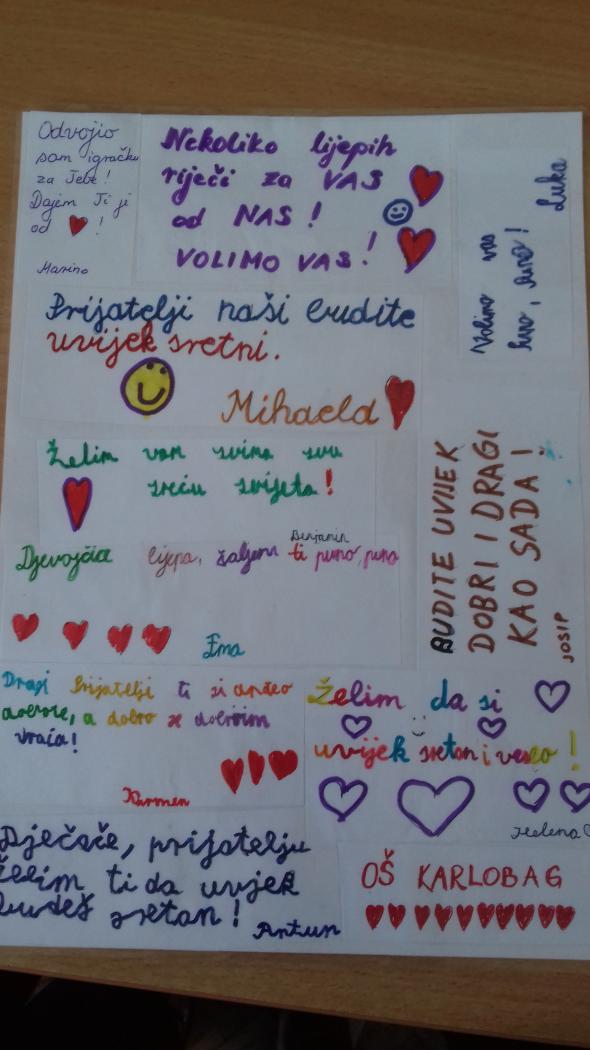 Odvojio
sam igračku
za Tebe!
Dajem Ti je
od !
Marino
Nekoliko lijepih
riječi za VAS
od NAS!
VOLIMO VAS!
Volimo vas
puno, puno!
Luka
Prijatelji naši budite
uvijek sretni.
Mihaela
Želim vam svima svu
sreću svijeta!
Benjamin
BUDITE UVIJEK
DOBRI I DRAGI
KAO SADA!
JOSIP
Djevojčica lijepa, šaljem ti puno, puno
Ema
Dragi Prijatelji ti si anđeo
dobrote, a dobro se dobrim
vraća!
Karmen
Želim da si
uvijek sretan i veseo!
Helena
Dječače, prijatelju
želim ti da uvjek
budeš sretan!
Antun
OŠ KARLOBAG